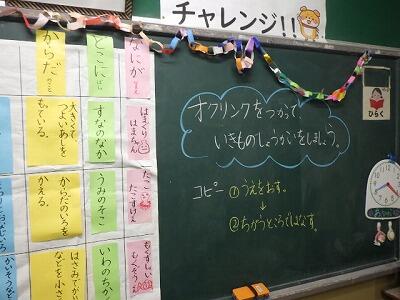 チャレンジ!!
オクリンクをつかって、
いきものしょうかいをしましょう。
コピー ①うえをおす。
↓
②ちがうところではなす。
ひらく
なにが
どこに
からだ
はまぐり
はまちゃん
すなのなか
大きくて、
つよいあしを
もっている。
たこ
うみのそこ
からだのいろを
かえる。
いわのちか
はさみでかい
などを小さ